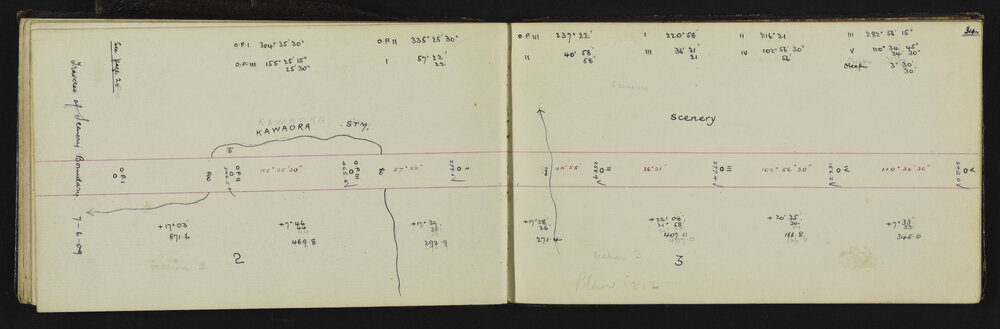 See page 20
Traverse of Scenery Boundary 7-6-09
O.P.I 304° 35' 30"
O.P.III 155° 25' 15"
25' 30"
O.P.II 335° 25' 30"
I 57° 22'
22'
KAWAORA STM.
O.P.I
O.P.II
155° 25' 30"
O.P.III
57° 22'
I
+17° 03'
671.6
+7° 46
44
469.8
+17° 39
293.9
2
Section 2
34
O.P.III 237° 22'
II 40° 58'
58'
I 220° 58'
III 36° 21
21
II 216° 21
IV 102° 56' 30"
56'
III 282° 56' 15"
V 110° 34' 45"
34' 30"
3° 30'
30'
Scenery
Scenery
40° 58
II
36° 21
III
102° 56' 30"
IV
110° 34' 30"
V
+7° 28'
26'
271.4
+22° 02'
21° 58
407.0
+20° 35'
34'
166.8
+7° 33'
33'
345.0
Section 3
3
Plan 1812